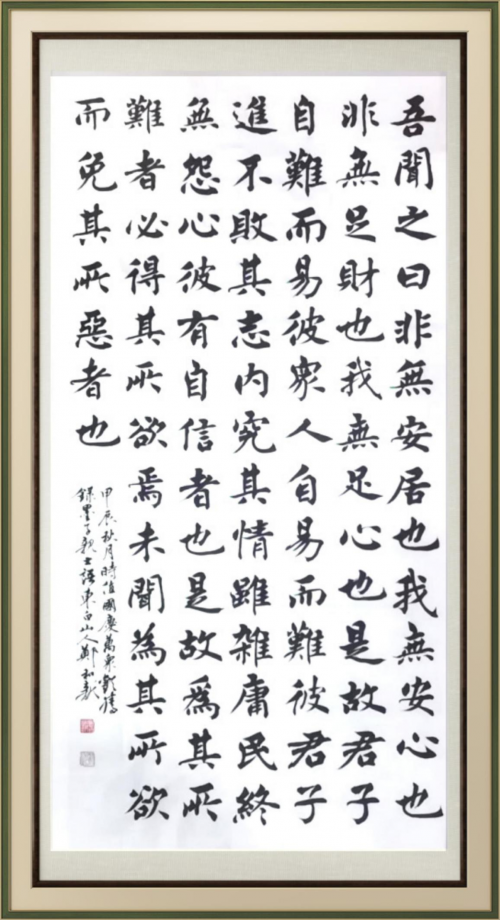 吾聞之曰非無安居也我無安心也
非無足財也我無足心也是故君子
自難而易彼衆人自易而難彼君子
進不敗其志内究其情雖雜庸民終
無怨心彼有自信者也是故爲其所
難者必得其所欲焉未聞為其所欲
而免其所惡者也
甲辰秋月時值國慶萬衆歡騰
錄墨子親士語東白山人鄭和